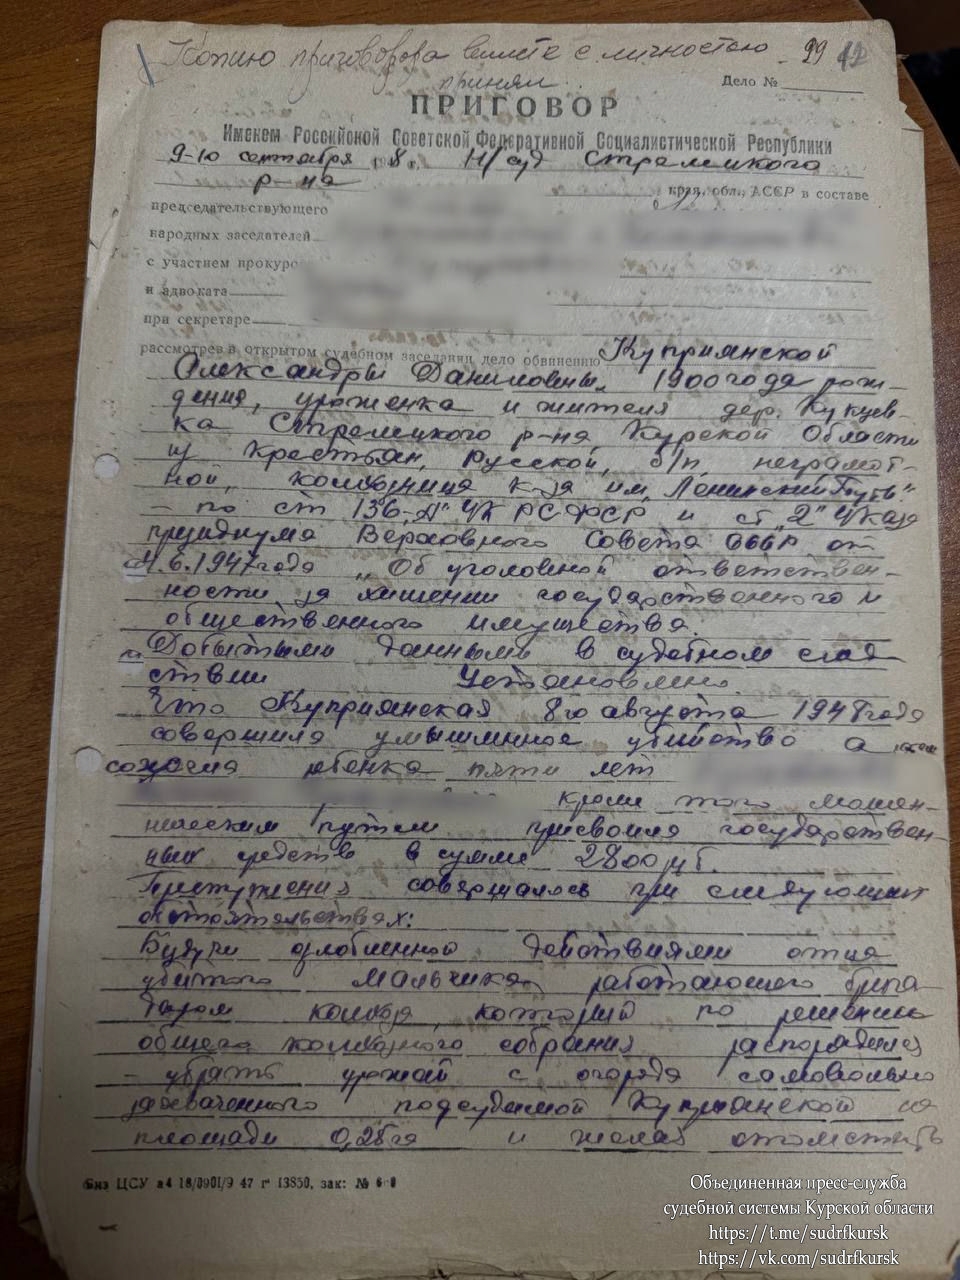 Копию приговора вместе с личностью 99 12
принял
Дело №
ПРИГОВОР
Именем Российской Советской Федеративной Социалистической Республики
9-10 сентября 1948 г. Н/суд Стрелецкого
р-на
края, обл., АССР в составе
председательствующего
народных заседателей
с участием прокуро
и адвоката
при секретаре
рассмотрев в открытом судебном заседании дело обвинению Куприянской
Александры Даниловны, 1900 года рож-
дения, уроженка и жителя дер. Кукуев-
ка Стрелецкого р-на, Курской Области
из Крестьян, Русской, б/п, неграмот-
ной, колхозница к-за им. "Ленинский Путь"
- по ст 136 "А" УК РСФСР и ст "2" Указа
президиума Верховного Совета СССР от
4.6.1947 года "Об уголовной ответствен-
ности за хищении государственного и
общественного имущества.
Добытыми данными в судебном след
ствии Установлено
Что Куприянская 8го августа 1948 года
совершила умышленное убийство а
сожгла ребенка пяти лет
кроме того мошен-
ническим путем присвоила государствен-
ных средств в сумме 2800 руб.
Преступления совершалось при следующих
обстоятельствах:
Будучи озлобленной действиями отца
убитого мальчика, работающего брига-
диром колхоза, который по решению
общего колхозного собрания распорядился
- убрать урожай с огорода самовольно
захваченного подсудимой Куприянской на
площади 0,28 га и желая отомстить
Биз ЦСУ а4 18/0901/9 47 г 13850, зак: №
Объединенная пресс-служба
судебной системы Курской области
https://t.me/sudrfkursk
https://vk.com/sudrfkursk